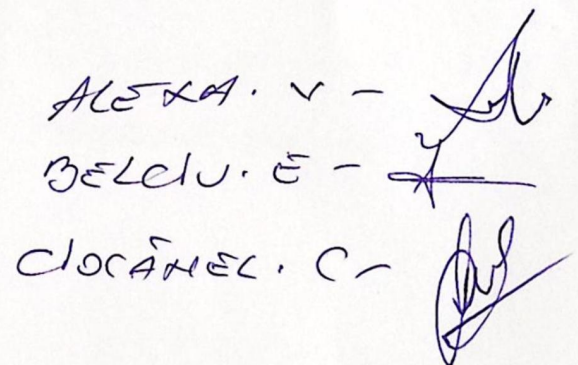 ALEXA. V -
BELCIU. E -
CIOCĂNEL. C -